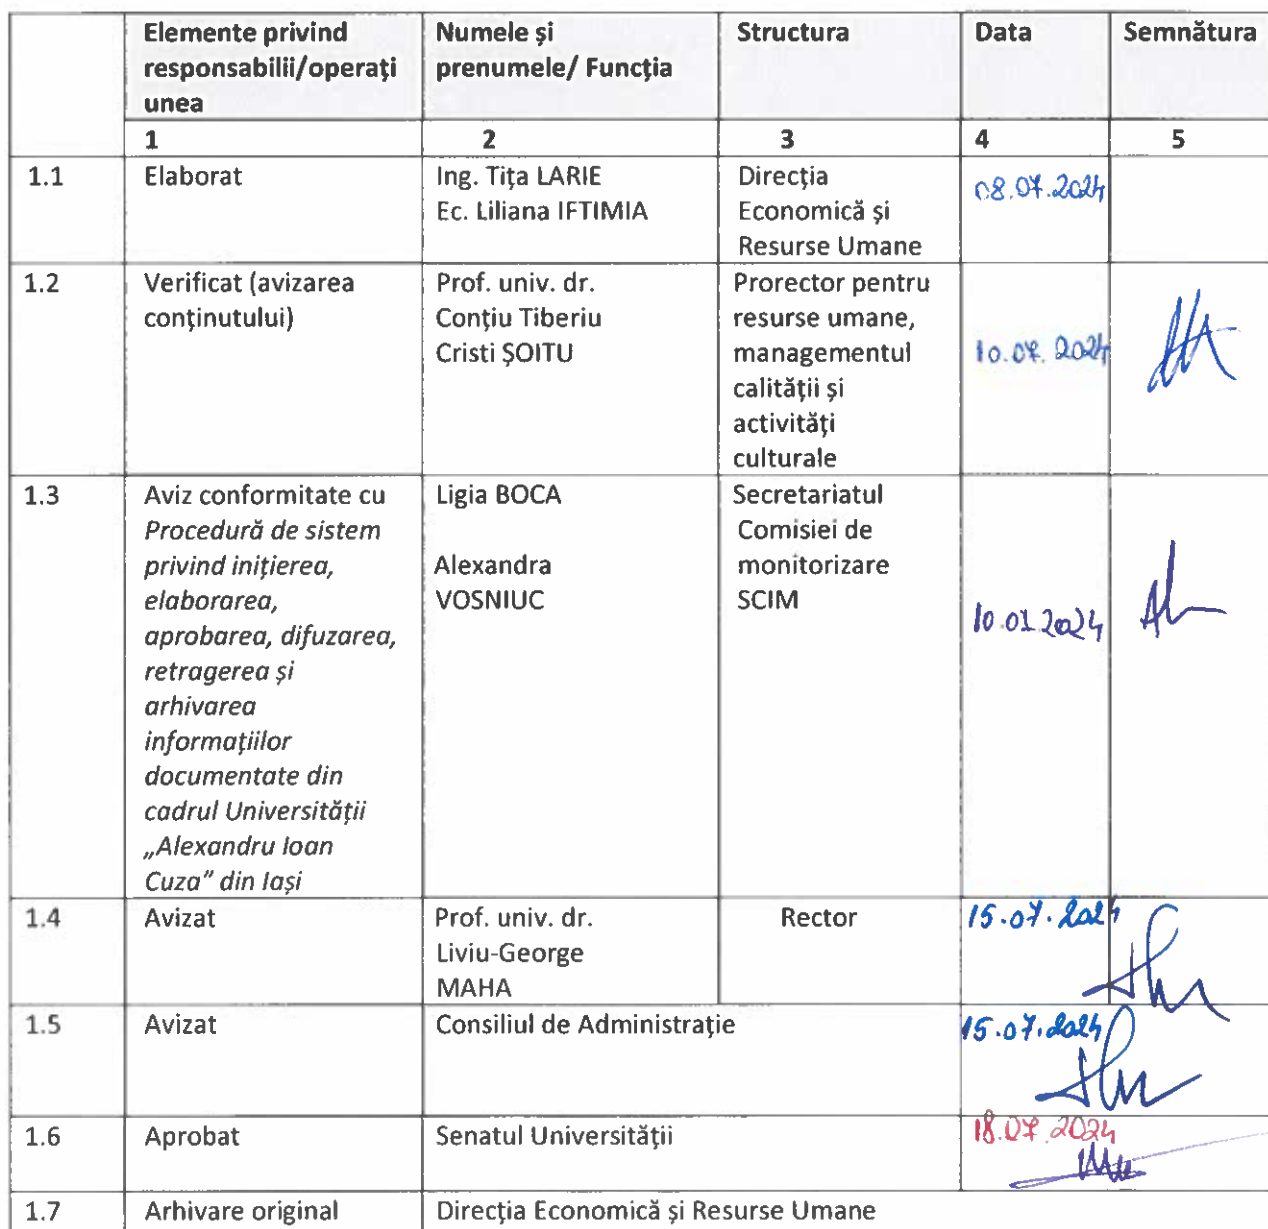 Elemente privind
responsabilii/operați
unea
Numele și
prenumele/ Funcția
Structura
Data
Semnătura
1
2
3
4
5
1.1
Elaborat
Ing. Tița LARIE
Ec. Liliana IFTIMIA
Direcția
Economică și
Resurse Umane
08.07.2024
1.2
Verificat (avizarea
conținutului)
Prof. univ. dr.
Conțiu Tiberiu
Cristi ȘOITU
Prorector pentru
resurse umane,
managementul
calității și
activități
culturale
10.07.2024
1.3
Aviz conformitate cu
Procedură de sistem
privind inițierea,
elaborarea,
aprobarea, difuzarea,
retragerea și
arhivarea
informațiilor
documentate din
cadrul Universității
„Alexandru Ioan
Cuza” din Iași
Ligia BOCA
Alexandra
VOSNIUC
Secretariatul
Comisiei de
monitorizare
SCIM
10.07.2024
1.4
Avizat
Prof. univ. dr.
Liviu-George
MAHA
Rector
15.07.2024
1.5
Avizat
Consiliul de Administrație
15.07.2024
1.6
Aprobat
Senatul Universității
18.07.2024
1.7
Arhivare original
Direcția Economică și Resurse Umane